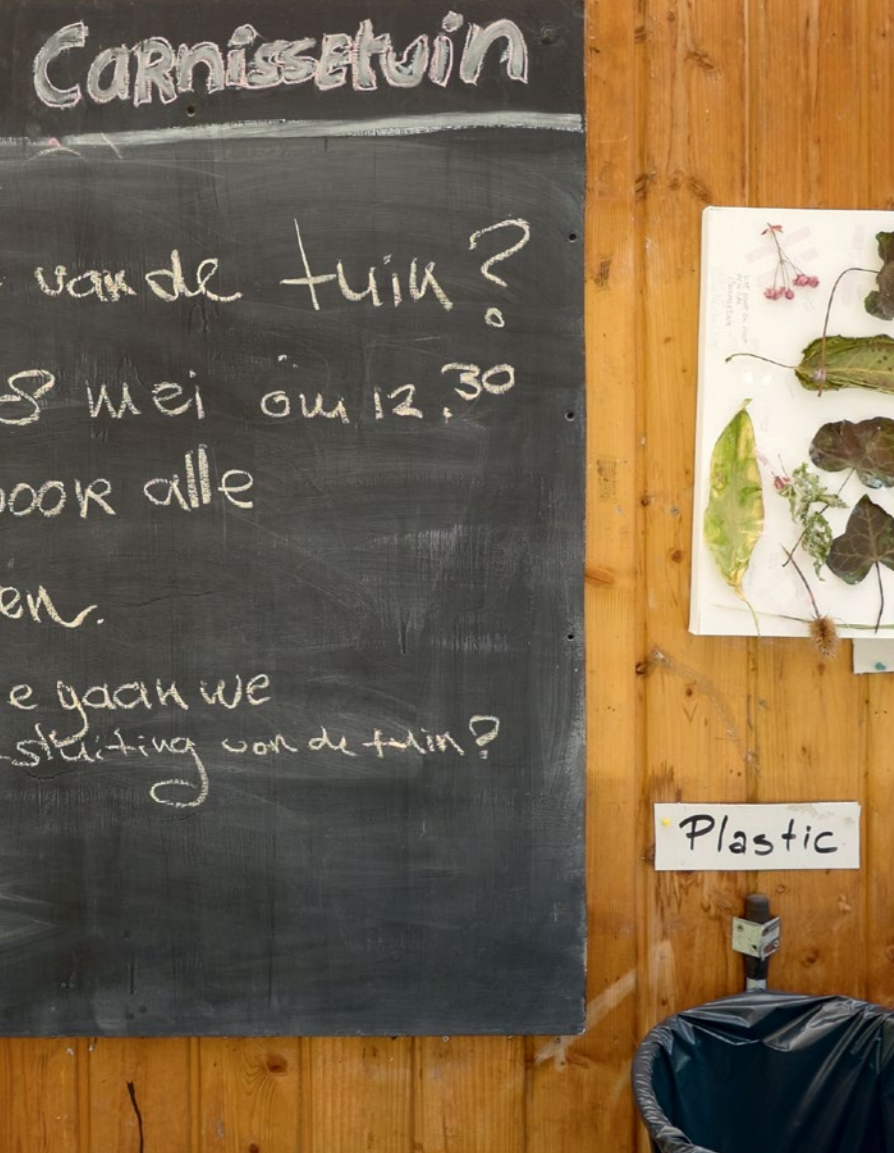 Carnissetuin
van de tuin?
8 mei om 12.30
voor alle
en.
e gaan we
sluiting van de tuin?
Plastic